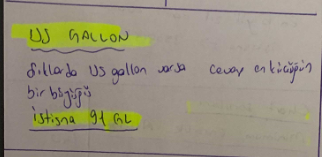 US GALLON
Şıklarda US gallon varsa cevap en küçüğün
bir büyüğü
İstisna 91 GL